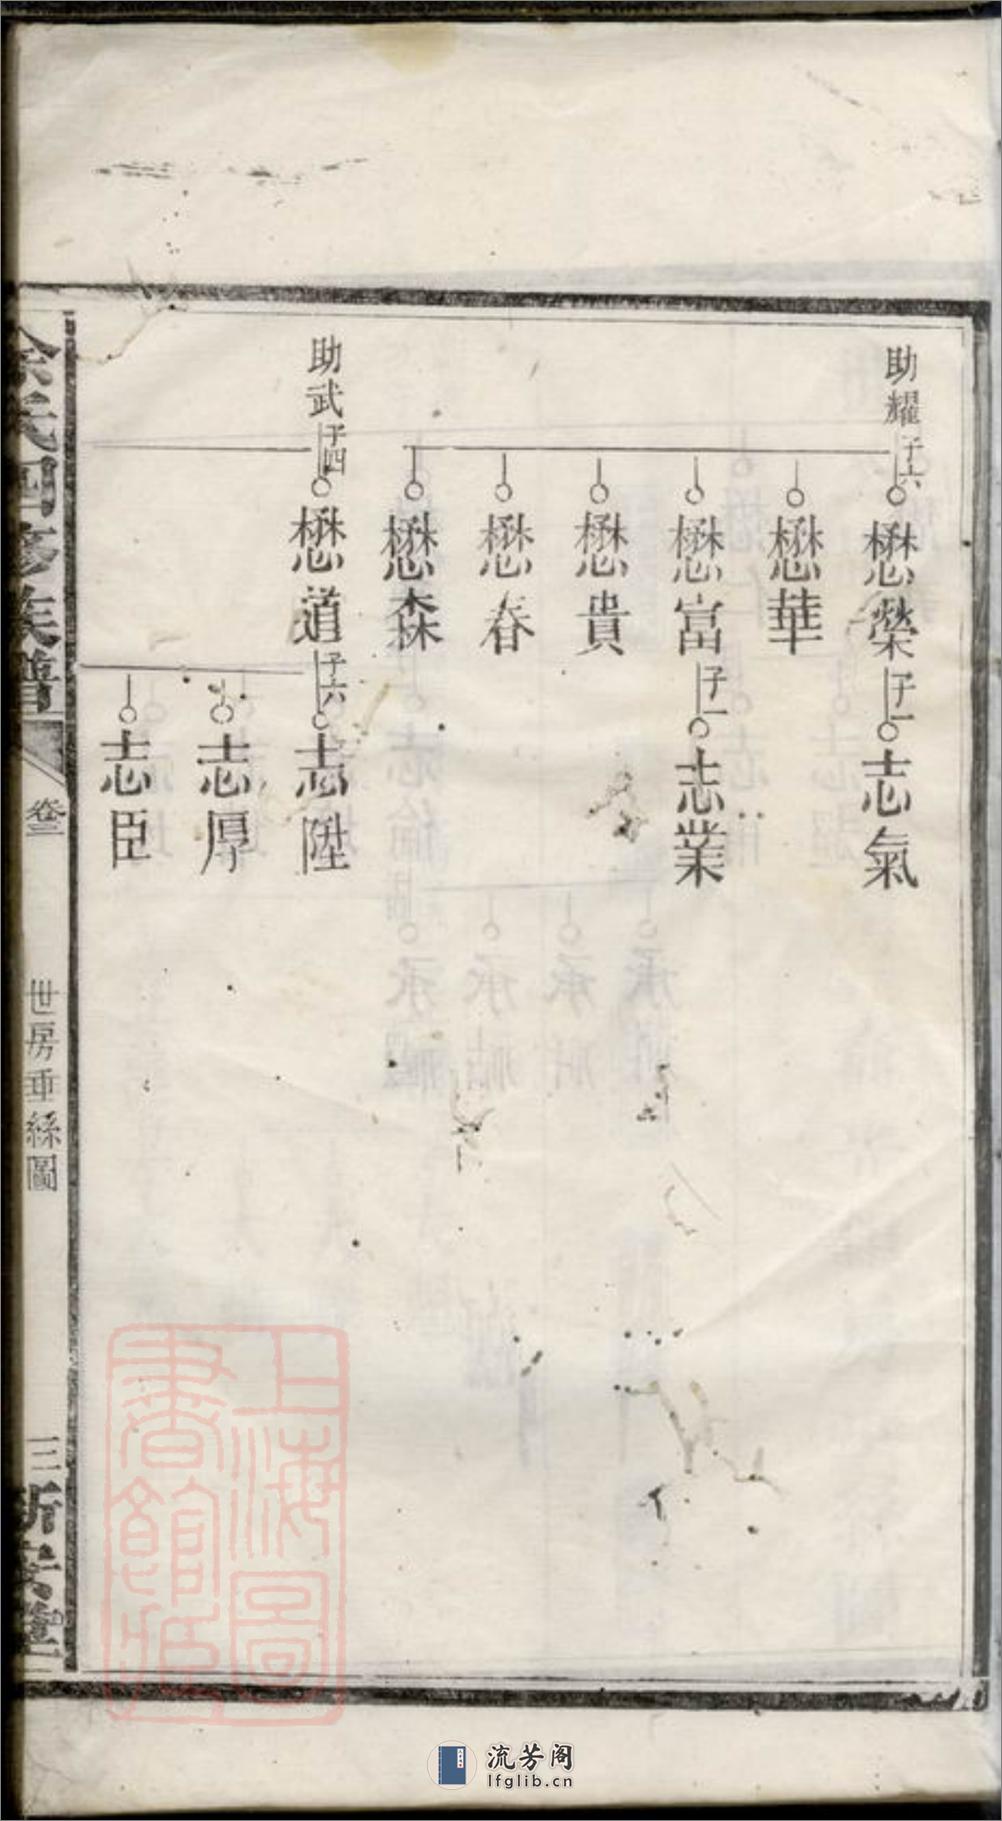 助耀子六
懋榮子一
志氣
懋華
懋富子一
志業
懋貴
懋春
懋森
助武子四
懋道子六
志陞
志厚
志臣
氏四修族譜
卷三
世房垂絲圖
三
新安堂
上海圖
書館藏
流芳阁
lfglib.cn